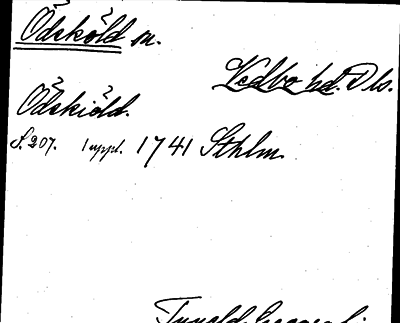 Ödsköld m.
Vedbo hd. Dls.
Ödskiöld.
S. 207. 1 uppl. 1741 Sthlm.
Tuneld,